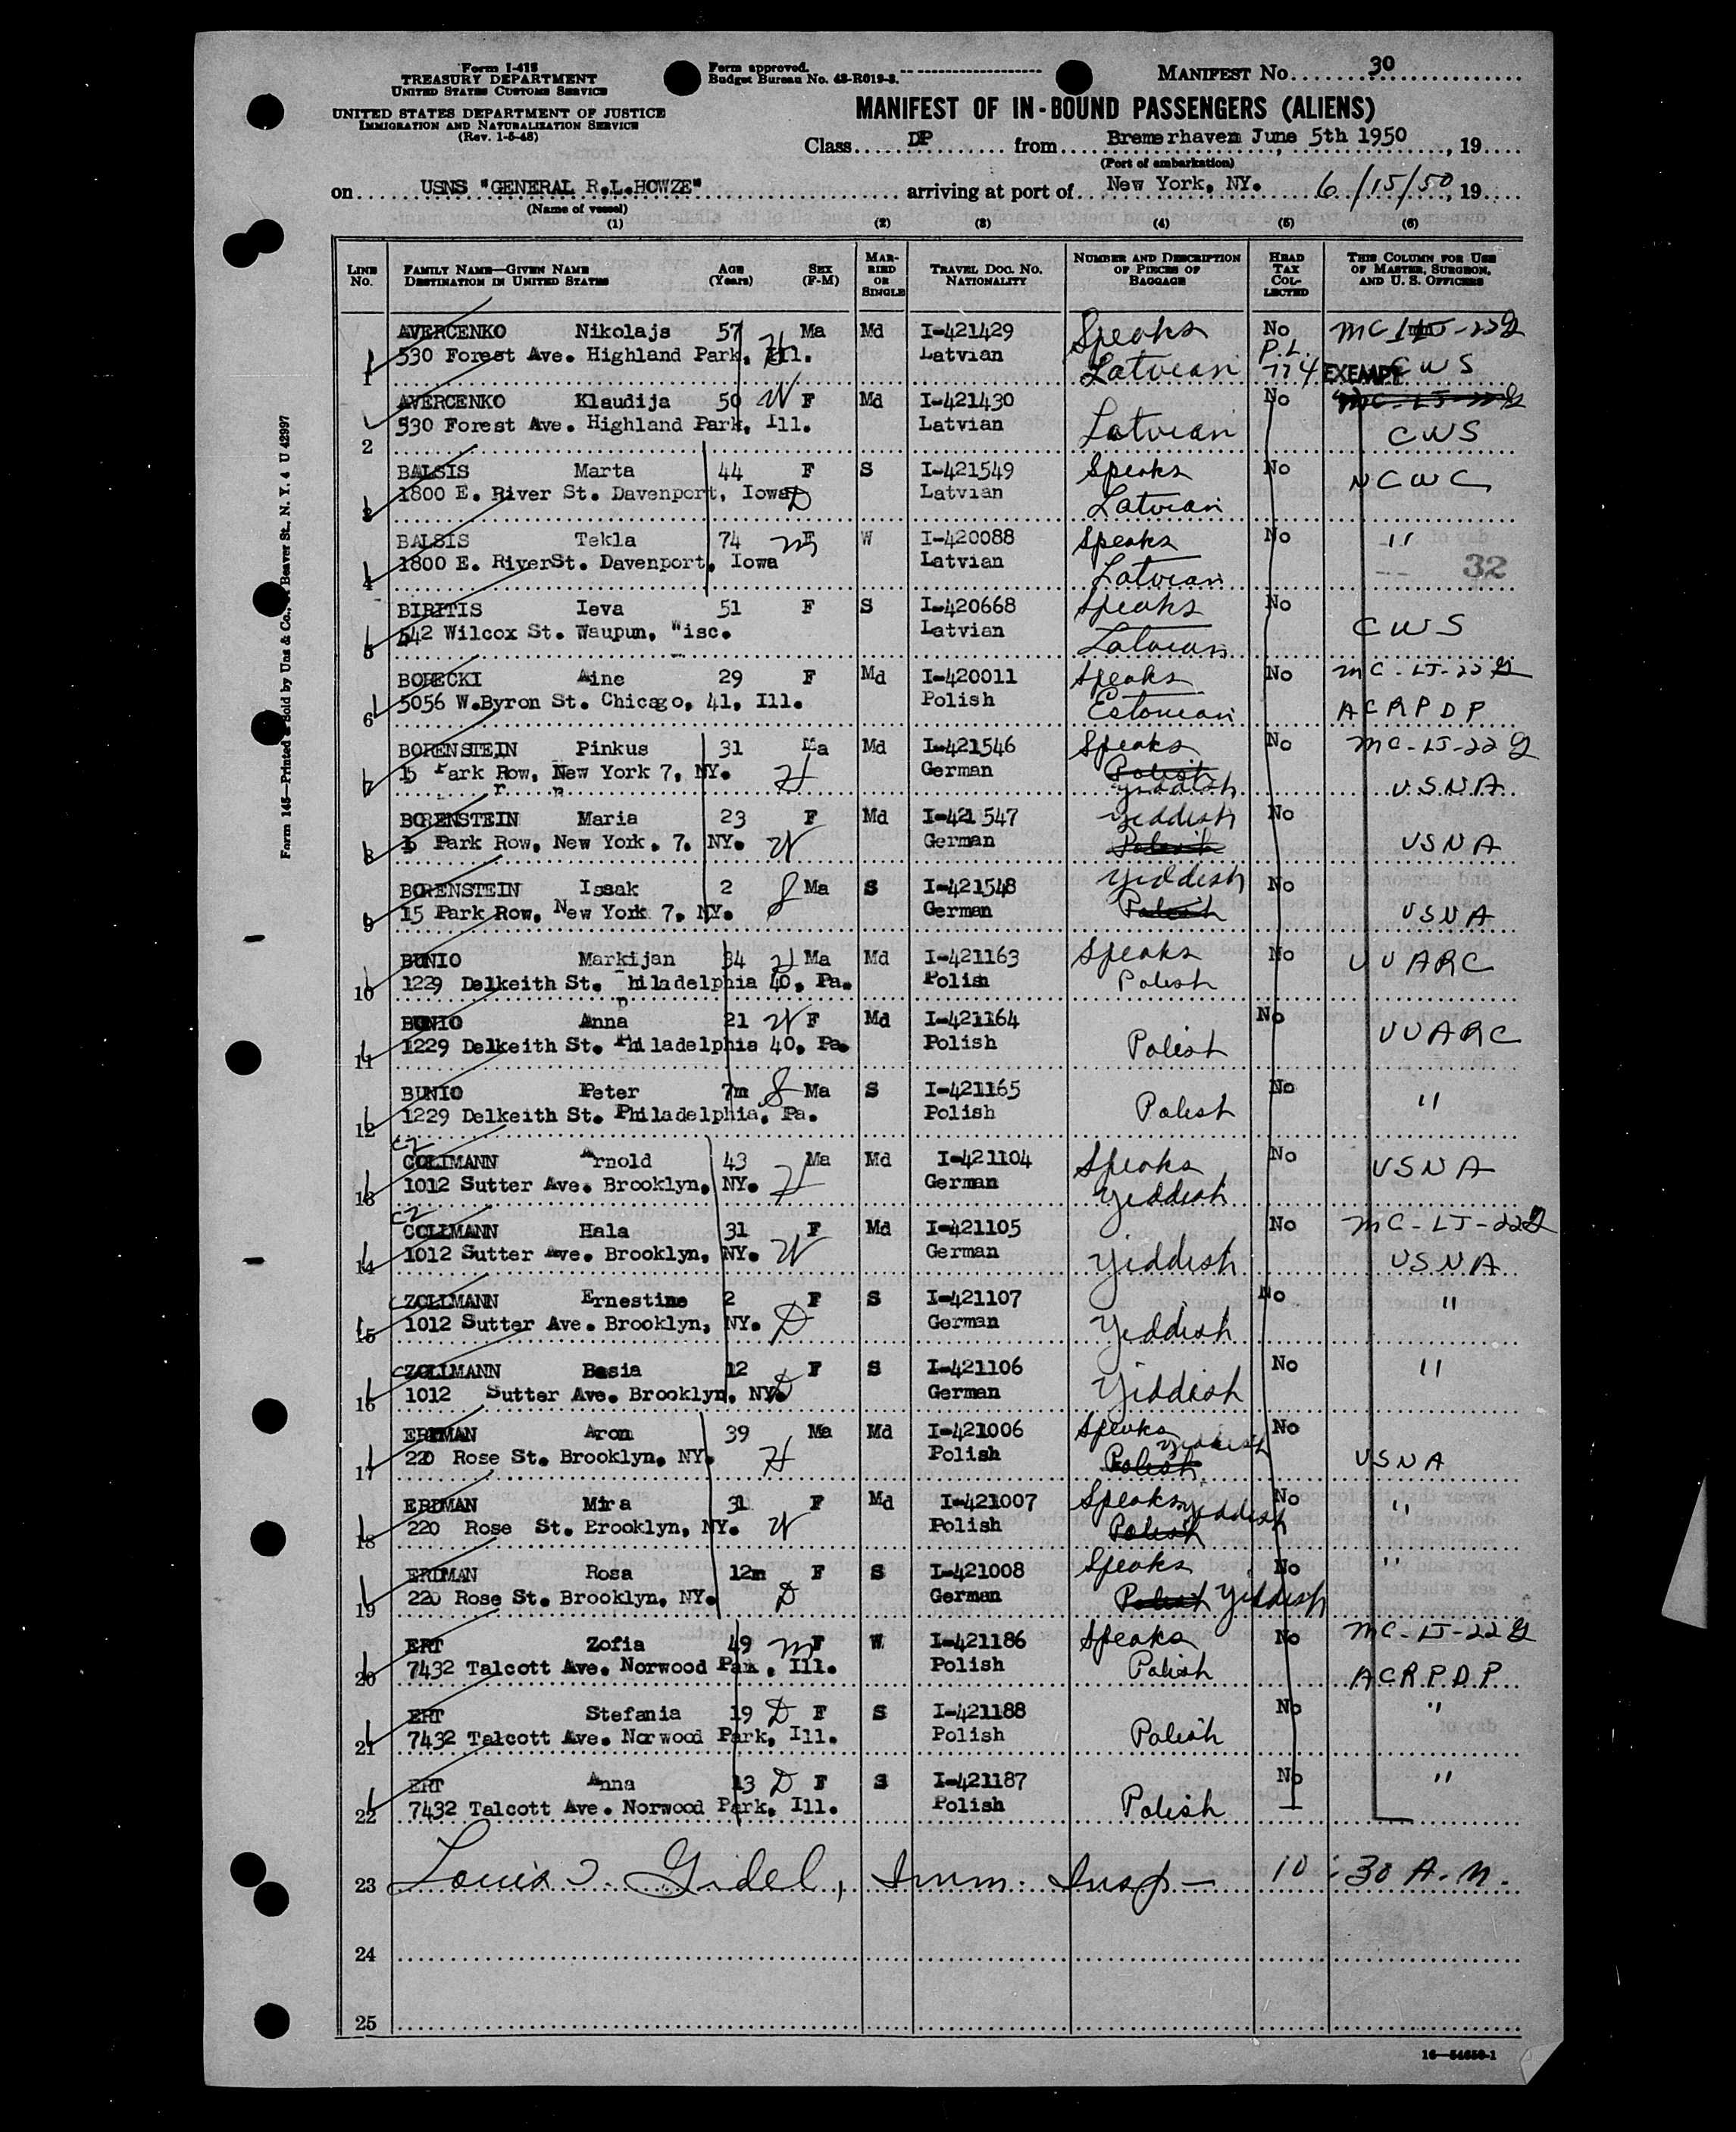 Form I-415
TREASURY DEPARTMENT
UNITED STATES CUSTOMS SERVICE
UNITED STATES DEPARTMENT OF JUSTICE
IMMIGRATION AND NATURALIZATION SERVICE
(Rev. 1-5-48)
Form approved.
Budget Bureau No. 43-R019-3.
MANIFEST No. 30
MANIFEST OF IN-BOUND PASSENGERS (ALIENS)
Class DP from Bremerhaven June 5th 1950, 19
(Port of embarkation)
on USNS "GENERAL R.L.HOWZE" arriving at port of New York, NY. 6/15/50, 19
(Name of vessel)
(1) (2) (3) (4) (5) (6)
LINE No. FAMILY NAME—GIVEN NAME DESTINATION IN UNITED STATES AGE (Years) SEX (F-M) MARRIED OR SINGLE TRAVEL DOC. NO. NATIONALITY NUMBER AND DESCRIPTION OF PIECES OF BAGGAGE HEAD TAX COLLECTED THIS COLUMN FOR USE OF MASTER, SURGEON, AND U. S. OFFICERS
AVERCENKO Nikolajs 57 H Ma Md I-421429 Speaks No MC
1 530 Forest Ave. Highland Park, Ill. Latvian Latvian P.L. 774 EXEMPT CWS
AVERCENKO Klaudija 50 W F Md I-421430 No MC-LJ-22
2 530 Forest Ave. Highland Park, Ill. Latvian Latvian CWS
BALSIS Marta 44 F S I-421549 Speaks No NCWC
3 1800 E. River St. Davenport, Iowa D Latvian Latvian
BALSIS Tekla 74 m F W I-420088 Speaks No "
4 1800 E. RiverSt. Davenport, Iowa Latvian Latvian 32
BIRITIS Ieva 51 F S I-420668 Speaks No
5 542 Wilcox St. Waupun, Wisc. Latvian Latvian CWS
BORECKI Aine 29 F Md I-420011 Speaks No MC-LJ-22
6 5056 W.Byron St. Chicago, 41, Ill. Polish Estonian ACRPDP
BORENSTEIN Pinkus 31 Ma Md I-421546 Speaks No MC-LJ-22
7 15 Park Row, New York 7, NY. H German Polish Yiddish USNA
BORENSTEIN Maria 23 F Md I-421547 Yiddish No
8 15 Park Row, New York, 7. NY. W German Polish USNA
BORENSTEIN Issak 2 S Ma S I-421548 Yiddish No
9 15 Park Row, New York 7. NY. German Polish USNA
BUNIO Markijan 34 H Ma Md I-421163 Speaks No UUARC
10 1229 Delkeith St. Philadelphia 40, Pa. Polish Polish
BUNIO Anna 21 W F Md I-421164 No
11 1229 Delkeith St. Philadelphia 40, Pa. Polish Polish UUARC
BUNIO Peter 7m S Ma S I-421165 No
12 1229 Delkeith St. Philadelphia, Pa. Polish Polish "
CZ
COLLMANN Arnold 43 Ma Md I-421104 Speaks No USNA
13 1012 Sutter Ave. Brooklyn, NY. H German Yiddish
CZ
COLLMANN Hala 31 F Md I-421105 No MC-LJ-22
14 1012 Sutter Ave. Brooklyn, NY. W German Yiddish USNA
CZOLLMANN Ernestine 2 F S I-421107 No "
15 1012 Sutter Ave. Brooklyn, NY. D German Yiddish
CZOLLMANN Basia 12 F S I-421106 No "
16 1012 Sutter Ave. Brooklyn, NY. D German Yiddish
ERDMAN Aron 39 Ma Md I-421006 Speaks Yiddish No
17 220 Rose St. Brooklyn, NY. H Polish Polish USNA
ERDMAN Mira 31 F Md I-421007 Speaks Yiddish No "
18 220 Rose St. Brooklyn, NY. W Polish Polish
ERDMAN Rosa 12m F S I-421008 Speaks No "
19 220 Rose St. Brooklyn, NY. D German Polish Yiddish
ERT Zofia 49 m F W I-421186 Speaks No MC-LJ-22
20 7432 Talcott Ave. Norwood Park, Ill. Polish Polish ACRPDP
ERT Stefania 19 D F S I-421188 No "
21 7432 Talcott Ave. Norwood Park, Ill. Polish Polish
ERT Anna 13 D F S I-421187 No "
22 7432 Talcott Ave. Norwood Park, Ill. Polish Polish
23 Louis J. Gidel, Imm. Insp— 10:30 A.M.
24
25
16—54650-1
Form 145—Printed & Sold by Unz & Co., Beaver St., N. Y. 4 U 42997